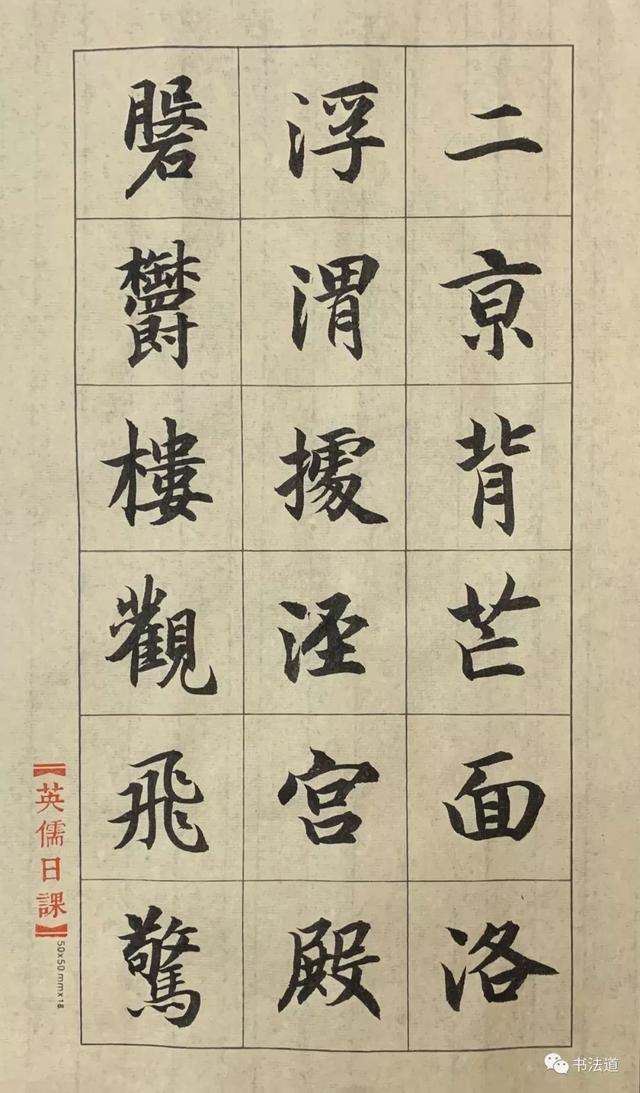 二亰背芒面洛
浮渭據涇宫殿
磐鬱樓觀飛驚
【英儒日課】50x50mmx18
书法道